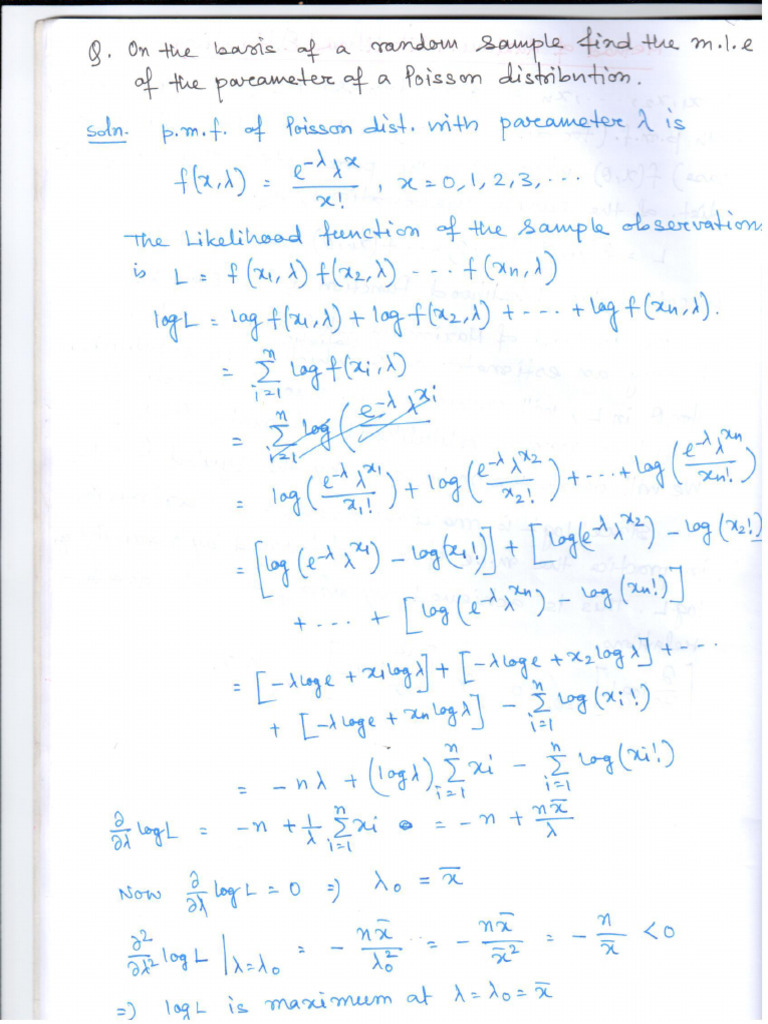 Q. On the basis of a random sample find the m.l.e
of the parameter of a Poisson distribution.
Soln. p.m.f. of Poisson dist. with parameter λ is
f(x,λ) = e^{-λ} λ^x / x! , x = 0,1,2,3,...
The Likelihood function of the sample observation
is L = f(x₁,λ) f(x₂,λ) --- f(xₙ,λ)
log L = log f(x₁,λ) + log f(x₂,λ) + --- + log f(xₙ,λ).
= Σ_{i=1}^{n} log f(xᵢ,λ)
= Σ_{i=1}^{n} log (e^{-λ} λ^{xᵢ}
= log(e^{-λ} λ^{x₁} / x₁!) + log(e^{-λ} λ^{x₂} / x₂!) + --- + log(e^{-λ} λ^{xₙ} / xₙ!)
= [log(e^{-λ} λ^{x₁}) - log(x₁!)] + [log(e^{-λ} λ^{x₂}) - log(x₂!)]
+ --- + [log(e^{-λ} λ^{xₙ}) - log(xₙ!)]
= [-λ log e + x₁ log λ] + [-λ log e + x₂ log λ] + ---
+ [-λ log e + xₙ log λ] - Σ_{i=1}^{n} log(xᵢ!)
= -nλ + (log λ) Σ_{i=1}^{n} xᵢ - Σ_{i=1}^{n} log(xᵢ!)
∂/∂λ log L = -n + 1/λ Σ_{i=1}^{n} xᵢ = -n + n x̄ / λ
Now ∂/∂λ log L = 0 ⇒ λ₀ = x̄
∂²/∂λ² log L |_{λ=λ₀} = - n x̄ / λ₀² = - n x̄ / x̄² = - n / x̄ < 0
⇒ log L is maximum at λ = λ₀ = x̄